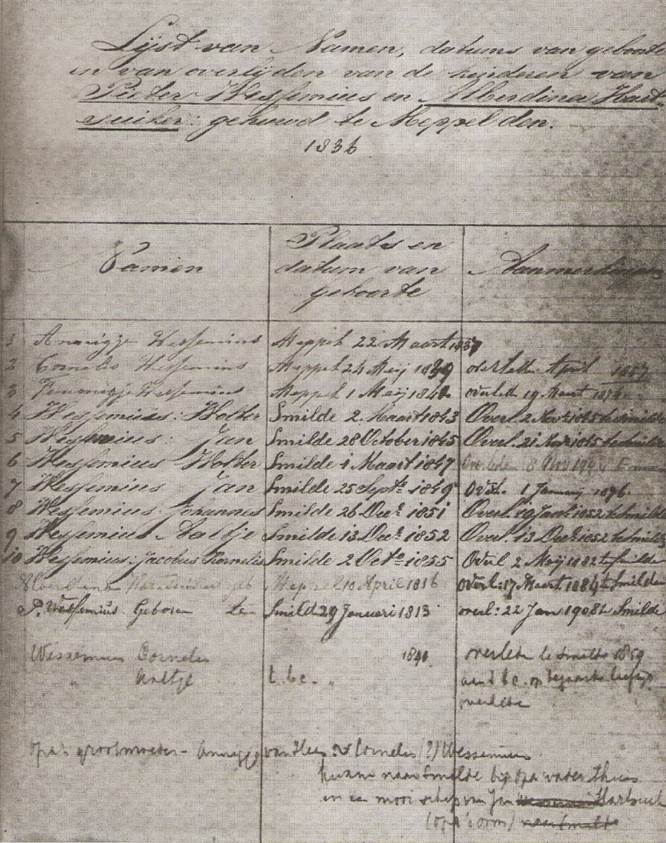 Lijst van Namen, datums van geboorte
en van overlijden van de kinderen van
Pieter Wessemius en Alberdina Hart
suiker: gehuwd te Meppel den.
1836
Namen
Plaats en datum van geboorte
Aanmerkingen
1 Annigje Wessemius Meppel 22 Maart 1837
2 Cornelis Wessemius Meppel 24 Meij 1839 April
3 Wessemius Meppel 1 Meij overl. 19 Maart
4 Wessemius: Wolter Smilde 2 Maart 1843 Overl 2 Nov: 1845 te Smilde
5 Wessemius: Jan Smilde 28 October 1845 Overl. 21 Nov: 1845 te Smilde
6 Wessemius Wolter Smilde 1 Maart 1847 8 Nov
7 Wessemius Jan Smilde 25 Sept. 1849 Overl. 1 Januarij 1896
8 Wessemius: Johannes Smilde 26 Dec. 1851 Overl. 1852 te Smilde
9 Wessemius Aaltje Smilde 13 Dec. 1852 Overl. 13 Dec. 1852 te Smilde
10 Wessemius: Jacobus Kornelis Smilde 2 Oct. 1855 Overl 2 Meij 1882 te Smilde
Meppel 10 April 1816 overl: 17 Maart 1884 te Smilde
P. Wessemius Geboren te Smilde 29 Januari 1813 overl: 22 Jan 1908 te Smilde
Wessemius Cornelis overleden te Smilde 1859
" Aaltje t.b.c. " aan t.b.c. op leeftijd
overleden
opa's grootmoeder - Annigje van Hees Cornelis (?) Wessemius
kwam naar Smilde bij opa's vader thuis
in een mooi schip van Jan
(opa's oom)